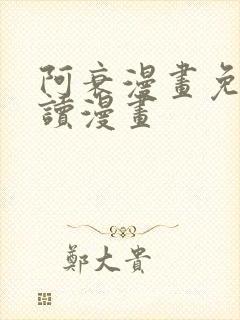 阿衰漫畫免
讀漫畫
鄭大貴